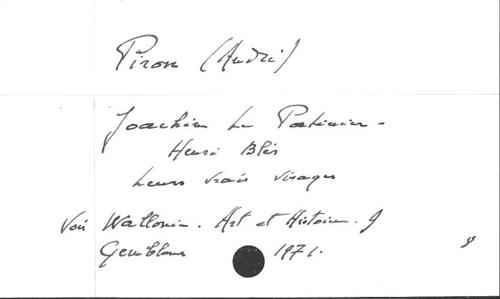 Piron (André)
Joachim Le Patinier -
Henri Blès
Leurs vrais visages
Voir Wallonie. Art et Histoire. 9
Gembloux 1971.